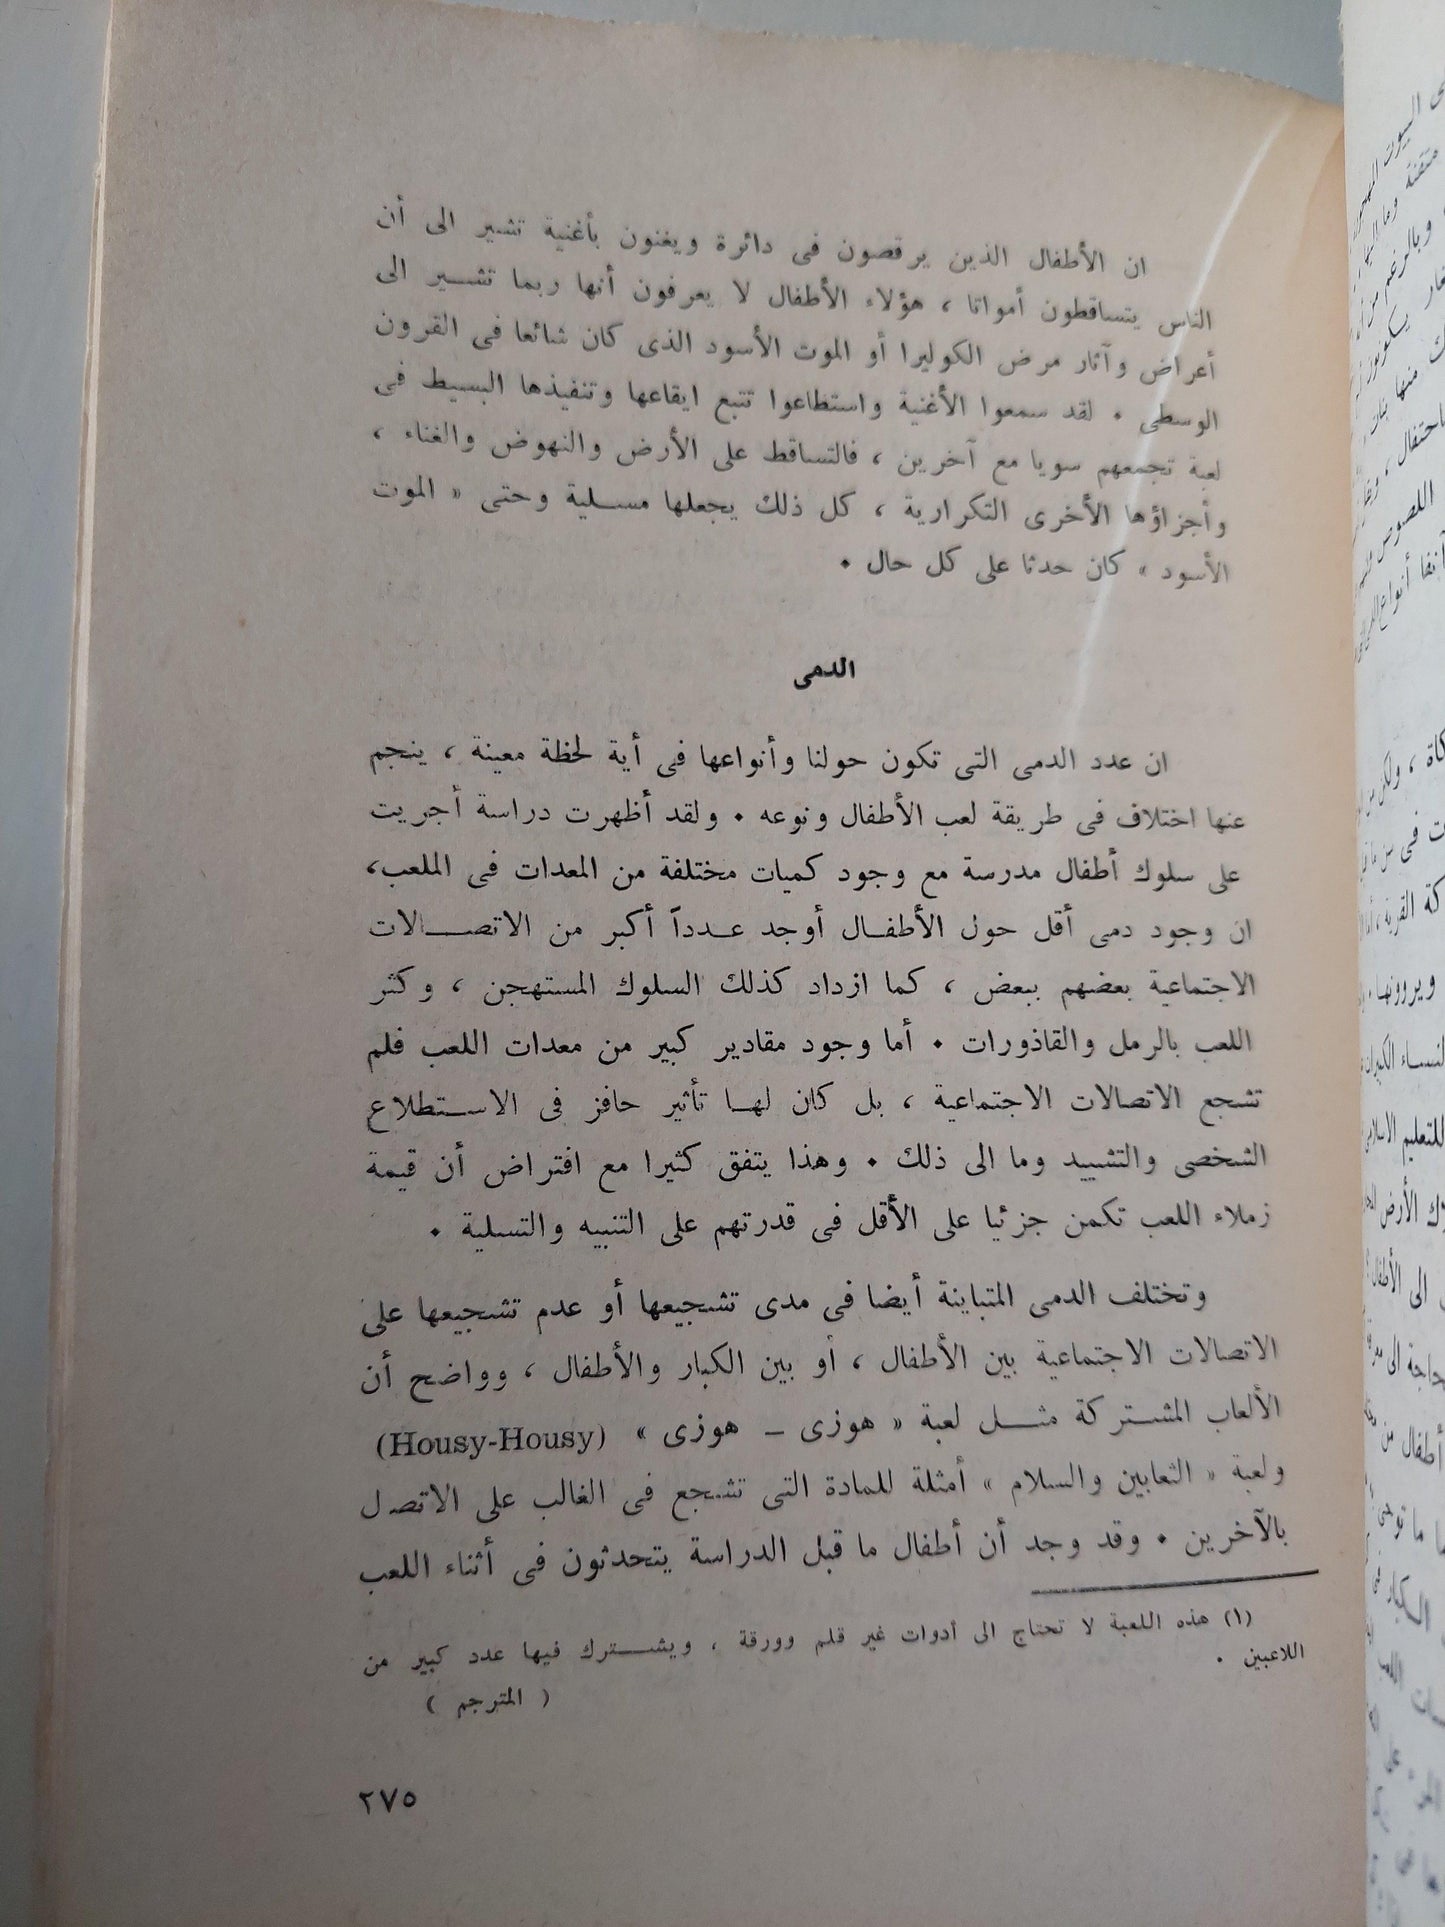 ان الأطفال الذين يرقصون فى دائرة ويغنون بأغنية تشير الى أن
الناس يتساقطون أمواتا ، هؤلاء الأطفال لا يعرفون أنها ربما تشير الى
أعراض وآثار مرض الكوليرا أو الموت الأسود الذى كان شائعا فى القرون
الوسطى . لقد سمعوا الأغنية واستطاعوا تتبع ايقاعها وتنفيذها البسيط فى
لعبة تجمعهم سويا مع آخرين ، فالتساقط على الأرض والنهوض والغناء ،
وأجزاؤها الأخرى التكرارية ، كل ذلك يجعلها مسلية وحتى « الموت
الأسود » كان حدثا على كل حال .
الدمى
ان عدد الدمى التى تكون حولنا وأنواعها فى أية لحظة معينة ، ينجم
عنها اختلاف فى طريقة لعب الأطفال ونوعه . ولقد أظهرت دراسة أجريت
على سلوك أطفال مدرسة مع وجود كميات مختلفة من المعدات فى الملعب،
ان وجود دمى أقل حول الأطفال أوجد عدداً أكبر من الاتصالات
الاجتماعية بعضهم ببعض ، كما ازداد كذلك السلوك المستهجن ، وكثر
اللعب بالرمل والقاذورات . أما وجود مقادير كبير من معدات اللعب فلم
تشجع الاتصالات الاجتماعية ، بل كان لها تأثير حافز فى الاستطلاع
الشخصى والتشييد وما الى ذلك . وهذا يتفق كثيرا مع افتراض أن قيمة
زملاء اللعب تكمن جزئيا على الأقل فى قدرتهم على التنبيه والتسلية .
وتختلف الدمى المتباينة أيضا فى مدى تشجيعها أو عدم تشجيعها على
الاتصالات الاجتماعية بين الأطفال ، أو بين الكبار والأطفال ، وواضح أن
الألعاب المشتركة مثل لعبة « هوزى – هوزى » (Housy-Housy)
ولعبة « الثعابين والسلام » أمثلة للمادة التى تشجع فى الغالب على الاتصل
بالآخرين . وقد وجد أن أطفال ما قبل الدراسة يتحدثون فى أثناء اللعب
(١) هذه اللعبة لا تحتاج الى أدوات غير قلم وورقة ، ويشترك فيها عدد كبير من
اللاعبين .
( المترجم )
٢٧٥